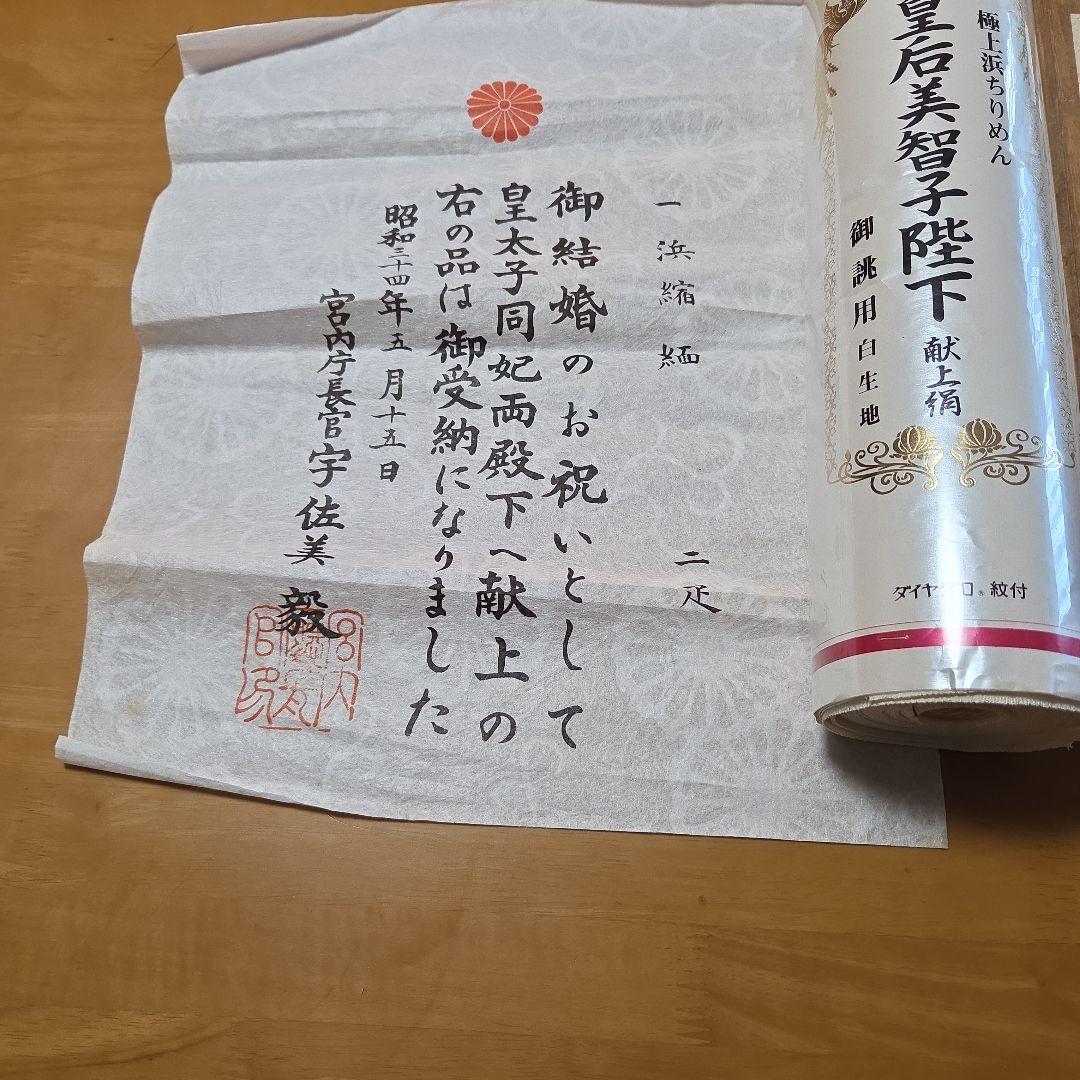 極上浜ちりめん
皇后美智子陛下
献上絹
御誂用白生地
紋付
一 浜縮緬 二疋
御結婚のお祝いとして
皇太子同妃両殿下へ献上の
右の品は御受納になりました
昭和三十四年五月十五日
宮内庁長官宇佐美毅